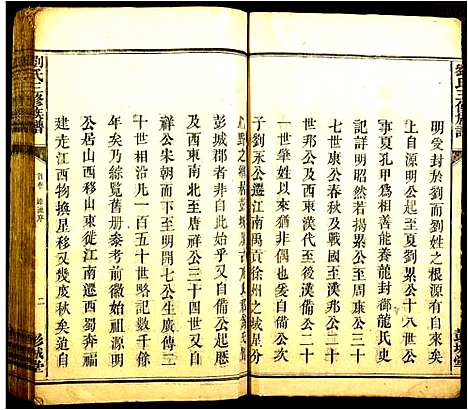 明受封於劉而劉姓之根源有自來矣
上自源明公起至夏劉累公十八世公
事夏孔甲為相善龍養龍封御龍氏史
記詳明昭然若揭累公至周康公三十
七世康公春秋及戰國至漢邦公二十
一世肇姓以來自始祖以至自備公次
子劉永公遷江南禺貢徐州之域星分
彭城郡者非世寶乎又自備公起歷
及西東南北至唐祥公三十四世又自
祥公宋朝而至明開七公生廣傳三
十世相沿凡一百五十世略記數千餘
年矣乃綜覽舊册參考前徽始祖源明
公居山西移山東遷江南遷西蜀奔福
建走江西物換星移又幾度秋矣迨自
劉氏三修族譜
首卷
源流序
二
彭城堂
劉氏三修族譜
彭城堂